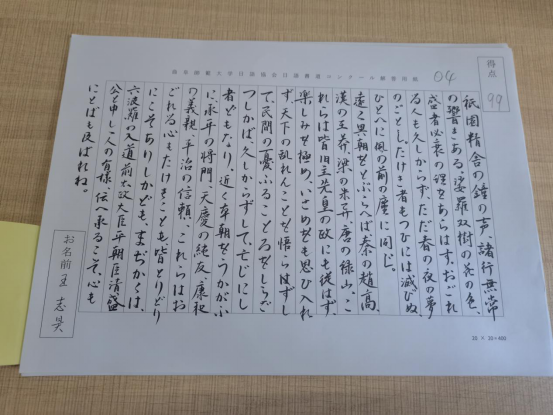 大学日語協会日語書道コンクール解答用紙
04
得点
99
祇園精舎の鐘の声、諸行無常
の響きあり。娑羅双樹の花の色、
盛者必衰の理をあらはす。おごれ
る人も久しからず、ただ春の夜の夢
のごとし。たけき者もつひには滅びぬ、
ひとへに風の前の塵に同じ。
遠く異朝をとぶらへば、秦の趙高、
漢の王莽、梁の朱异、唐の禄山、こ
れらは皆旧主先皇の政にも従はず、
楽しみを極め、いさめをも思ひ入れ
ず、天下の乱れんことを悟らずし
て、民間の憂ふるところをしらざ
つしかば、久しからずして、亡じにし
者どもなり。近く本朝をうかがふ
に、承平の将門、天慶の純友、康和
の義親、平治の信頼、これらはお
ごれる心もたけきことも、皆とりどり
にこそありしかども、まぢかくは、
六波羅の入道前太政大臣平朝臣清盛
公と申しし人の有様、伝へ承るこそ、心も
ことばも及ばれね。
お名前 王志昊
20 × 20=400